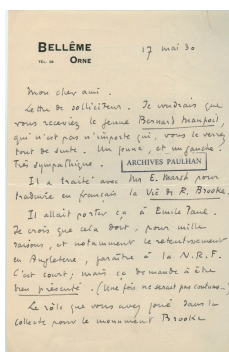 BELLÊME
ORNE
TÉL. 28
17 mai 30
Mon cher ami.
Lettre de solliciteur. Je voudrais que
vous receviez le jeune Bernard
qui n'est pas n'importe qui, vous le verrez
tout de suite. Un jeune, et un gauche.
Très sympathique.
ARCHIVES PAULHAN
Il a traité avec Mr E. Marsh pour
traduire en français la Vie de R. Brooke.
Il allait porter ça à Emile Paul.
Je crois que cela doit, pour mille
raisons, et notamment le retentissement
en Angleterre, paraître à la N.R.F.
C'est court; mais ça demande à être
bien présenté. (Une fois ne serait pas coutume...)
Le rôle que vous avez joué dans la
collecte pour le monument Brooke